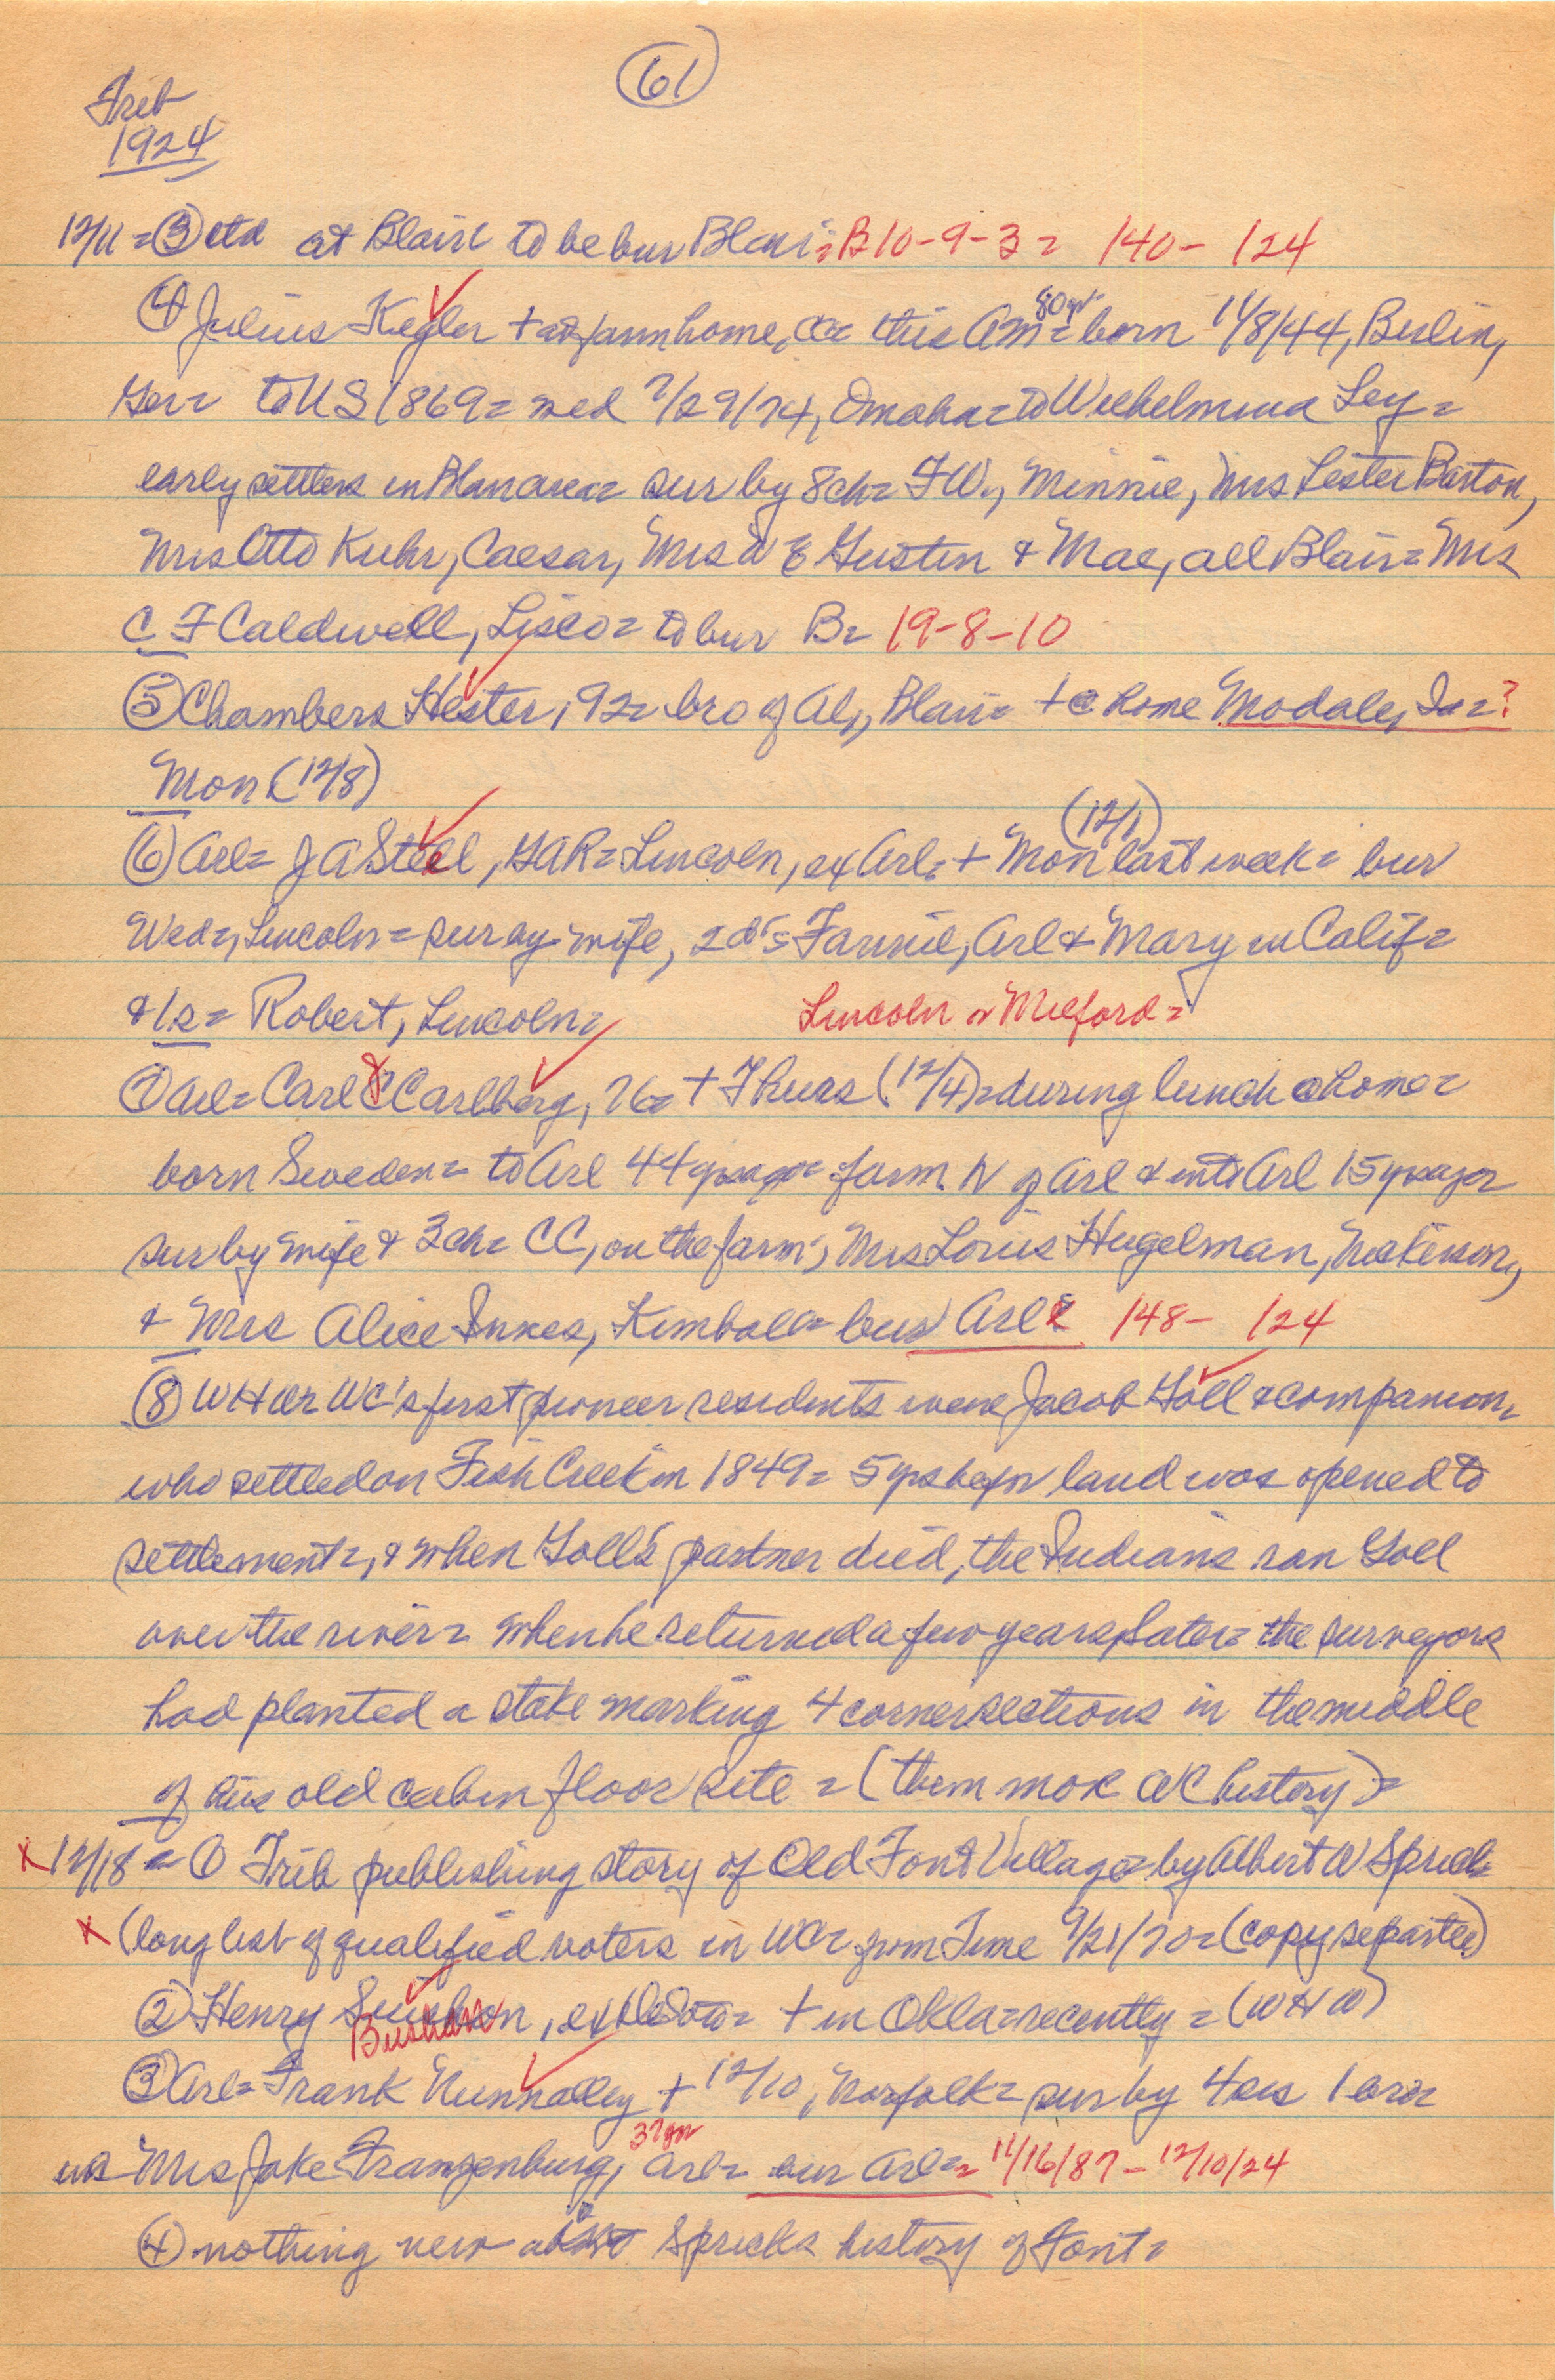 61
Trib
1924
12/11 = ③ ctd at Blair to be bur Blair = B 10-9-3 = 140 - 124
④ Julius Kegler + at farm home, this AM = 80 yr = born 11/8/44, Berlin,
Ger = to US 1869 = wed 7/29/74, Omaha = to Wilhelmina Ley =
early settlers in Blair area = sur by 8 ch = F W., Minnie, Mrs Lester Barton,
Mrs Otto Kuhr, Caesar, Mrs W E Gustin & Mae, all Blair = Mrs
C F Caldwell, Lisco = to bur B = 19-8-10
⑤ Chambers Hester, 92 = bro of Al, Blair = + @ home Modale, Ia = ?
Mon (12/8)
⑥ Arl = J A Steel, GAR = Lincoln, ex Arl = + Mon (12/1) last week = bur
Wed =, Lincoln = sur by wife, 2 d's = Fannie, Arl & Mary in Calif =
& 1 s = Robert, Lincoln = Lincoln or Milford =
⑦ Arl = Carl C Carlberg, 76 = + Thurs (12/4) = during lunch @ home =
born Sweden = to Arl 44 yrs ago = farm N of Arl & into Arl 15 yrs ago =
sur by wife & 3 ch = CC, on the farm; Mrs Louis Hugelman,
& Mrs Alice Inkes, Kimball = bur Arl = 148 - 124
⑧ WHW = WC's first pioneer residents were Jacob Goll & companion,
who settled on Fish Creek in 1849 = 5 yrs before land was opened to
settlement =, & when Goll's partner died, the Indians ran Goll
over the river = when he returned a few years later = the surveyors
had planted a stake marking 4 corner sections in the middle
of his old cabin floor site = ( WC history) =
x 12/18 = ① Trib publishing story of Old Font Village = by Albert W Sprick
x (long list of qualified voters in WC = from Time 9/21/70 = (copy separate)
② Henry Bushon, ex DeSoto = + in Okla = recently = (WHW)
③ Arl = Frank Nunnalley + 12/10, Norfolk = sur by 4 sis 1 bro =
Mrs Jake Franzenburg, Arl = 37 yr bur Arl = = 11/16/87 - 12/10/24
④ nothing new about Spricks history of Font =